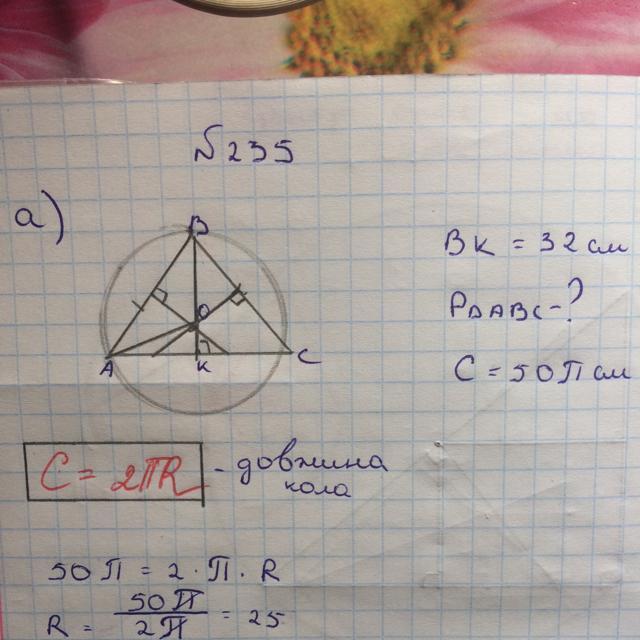 №235
а)
B
O
A
K
C
BK = 32 см
P△ABC - ?
C = 50П см
C = 2ПR - довжина
кола
50П = 2 · П · R
R = 50П / 2П = 25